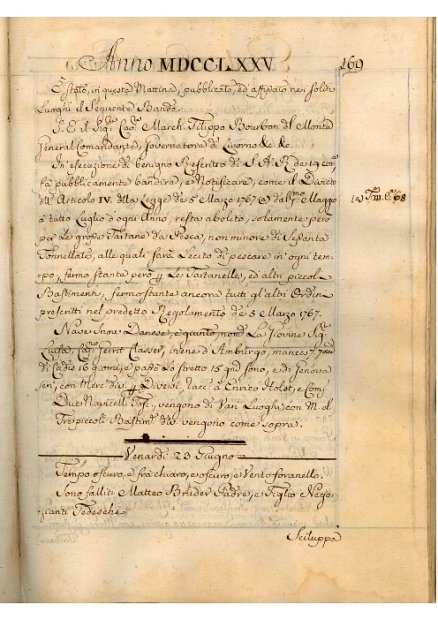 Anno MDCCLXXV. 169
È stato, in questa Mattina, pubblicato, ed affissato nei soliti
Luoghi il Seguente Bando.
S. E. il Sig.r Cav. March. Filippo Bourbon del Monte
General Comandante, Governatore di Livorno &c. &c.
In esecuzione di benigno Rescritto di S. A. R. de 19 cor.
fà pubblicamente bandire, e Notificare, come il Divieto
dell'Articolo IV. della Legge de 5 Marzo 1767 Maggio
a tutto Luglio d'ogni Anno, resta abolito, solamente però
per le grosse Tartane da Pesca, non minore di Sessanta
Tonnellate, alle quali sarà Lecito di pescare in ogni tem-
po, fermo stante però Le Tartanelle, ed altri piccoli
Bastimenti, fermo stante ancora tutti gl'altri Ordini
prescritti nel predetto Regolamento de 5 Marzo 1767.
Nave Snow Danese, è quinto, nom. La Giovine
Cap. Gerrit Classen, viene d'Amburgo, manca
di Cadis 16 giorni, e passò Lo stretto 15 sono, e di Genova
con Merc. div. Diversi, racc. a Enrico Holst, e Comp.
Due Navicelli Tosc. vengono di Van Luoghi con M. d.
Tre piccoli Bastim. div. vengono come sopra.
Venerdì 23 Giugno
Tempo oscuro, e frà chiaro, e oscuro, e Vento foranello.
Sono falliti Matteo Brüder Padre, e Figlio Nego-
zianti Tedeschi.
Sciluppo